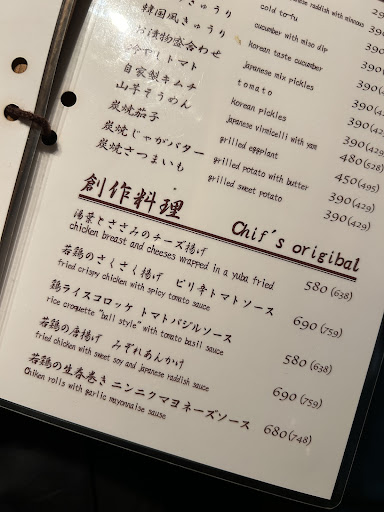 きゅうり
cold tor-fu
韓国風きゅうり
cucumber with miso dip 390
お漬物盛合わせ
korean taste cucumber 390
冷やしトマト
japanese mix pickles 390
自家製キムチ
tomato 390(429)
山芋そうめん
korean pickles 390(429)
炭焼茄子
japanese virmicelli with yam 480(528)
炭焼じゃがバター
grilled eggplant 450(495)
炭焼さつまいも
grilled potato with butter 390(429)
grilled sweet potato 390(429)
創作料理 Chif's origibal
湯葉とささみのチーズ揚げ
chicken breast and cheeses wrapped in a yuba fried 580(638)
若鶏のさくさく揚げ ピリ辛トマトソース
fried crispy chicken with spicy tomato sauce 690(759)
鶏ライスコロッケ トマトバジルソース
rice croquette "ball style" with tomato basil sauce 580(638)
若鶏の唐揚げ みぞれあんかけ
fried chicken with sweet soy and japanese raddish sauce 690(759)
若鶏の生春巻き ニンニクマヨネーズソース
Chiken rolls with garlic mayonnaise sause 680(748)